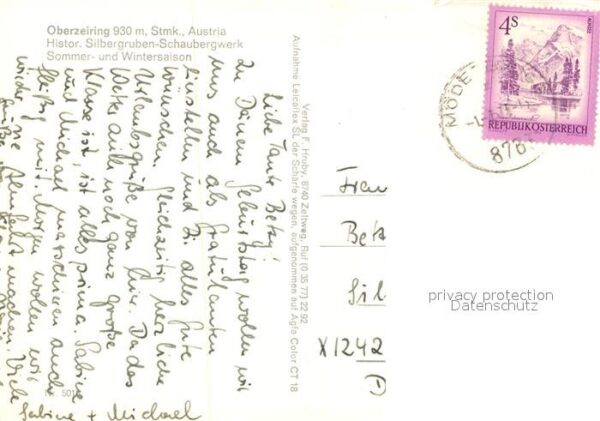 Oberzeiring 930 m, Stmk., Austria
Histor. Silbergruben-Schaubergwerk
Sommer- und Wintersaison
Liebe Tante Betty!
Zu Deinem Geburtstag wollen wir
uns auch als Gratulanten
einstellen und Dir alles Gute
wünschen. Gleichzeitig herzliche
Urlaubsgrüße von hier. Da das
Wetter auch noch ganz große
Klasse ist, ist alles prima. Sabine
und Michael marschieren auch
fleißig mit. Morgen wollen wir
wieder eine
machen. Viele
Sabine + Michael
Nr. 501
Verlag F. Hruby, 8740 Zeltweg, Ruf (0 35 77) 22 92
Aufnahme Leicaflex SL der Schärfe wegen, aufgenommen auf Agfa Color CT 18
4S
ALMSEE
REPUBLIK ÖSTERREICH
MÖDE
878
Frau
Bet
Sil
X1242
D
privacy protection
Datenschutz